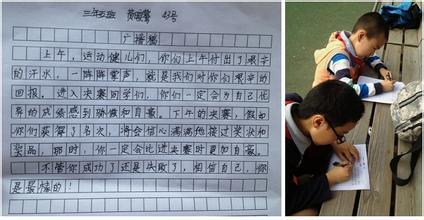 三年五班 黄 42号
广播稿
上午,运动健儿们,你们上午付出了艰辛
的汗水,一阵阵掌声,就是我们对你们艰辛的
回报。进入决赛同学们,你们一定会为自己优
异的成绩感到骄傲和自豪。下午的决赛,假如
你们获得了名次,将会信心满满地接过奖状和
奖品,那时,你一定会比进决赛时更加自豪。
不管你成功了还是失败了,相信自己,你
是最棒的!